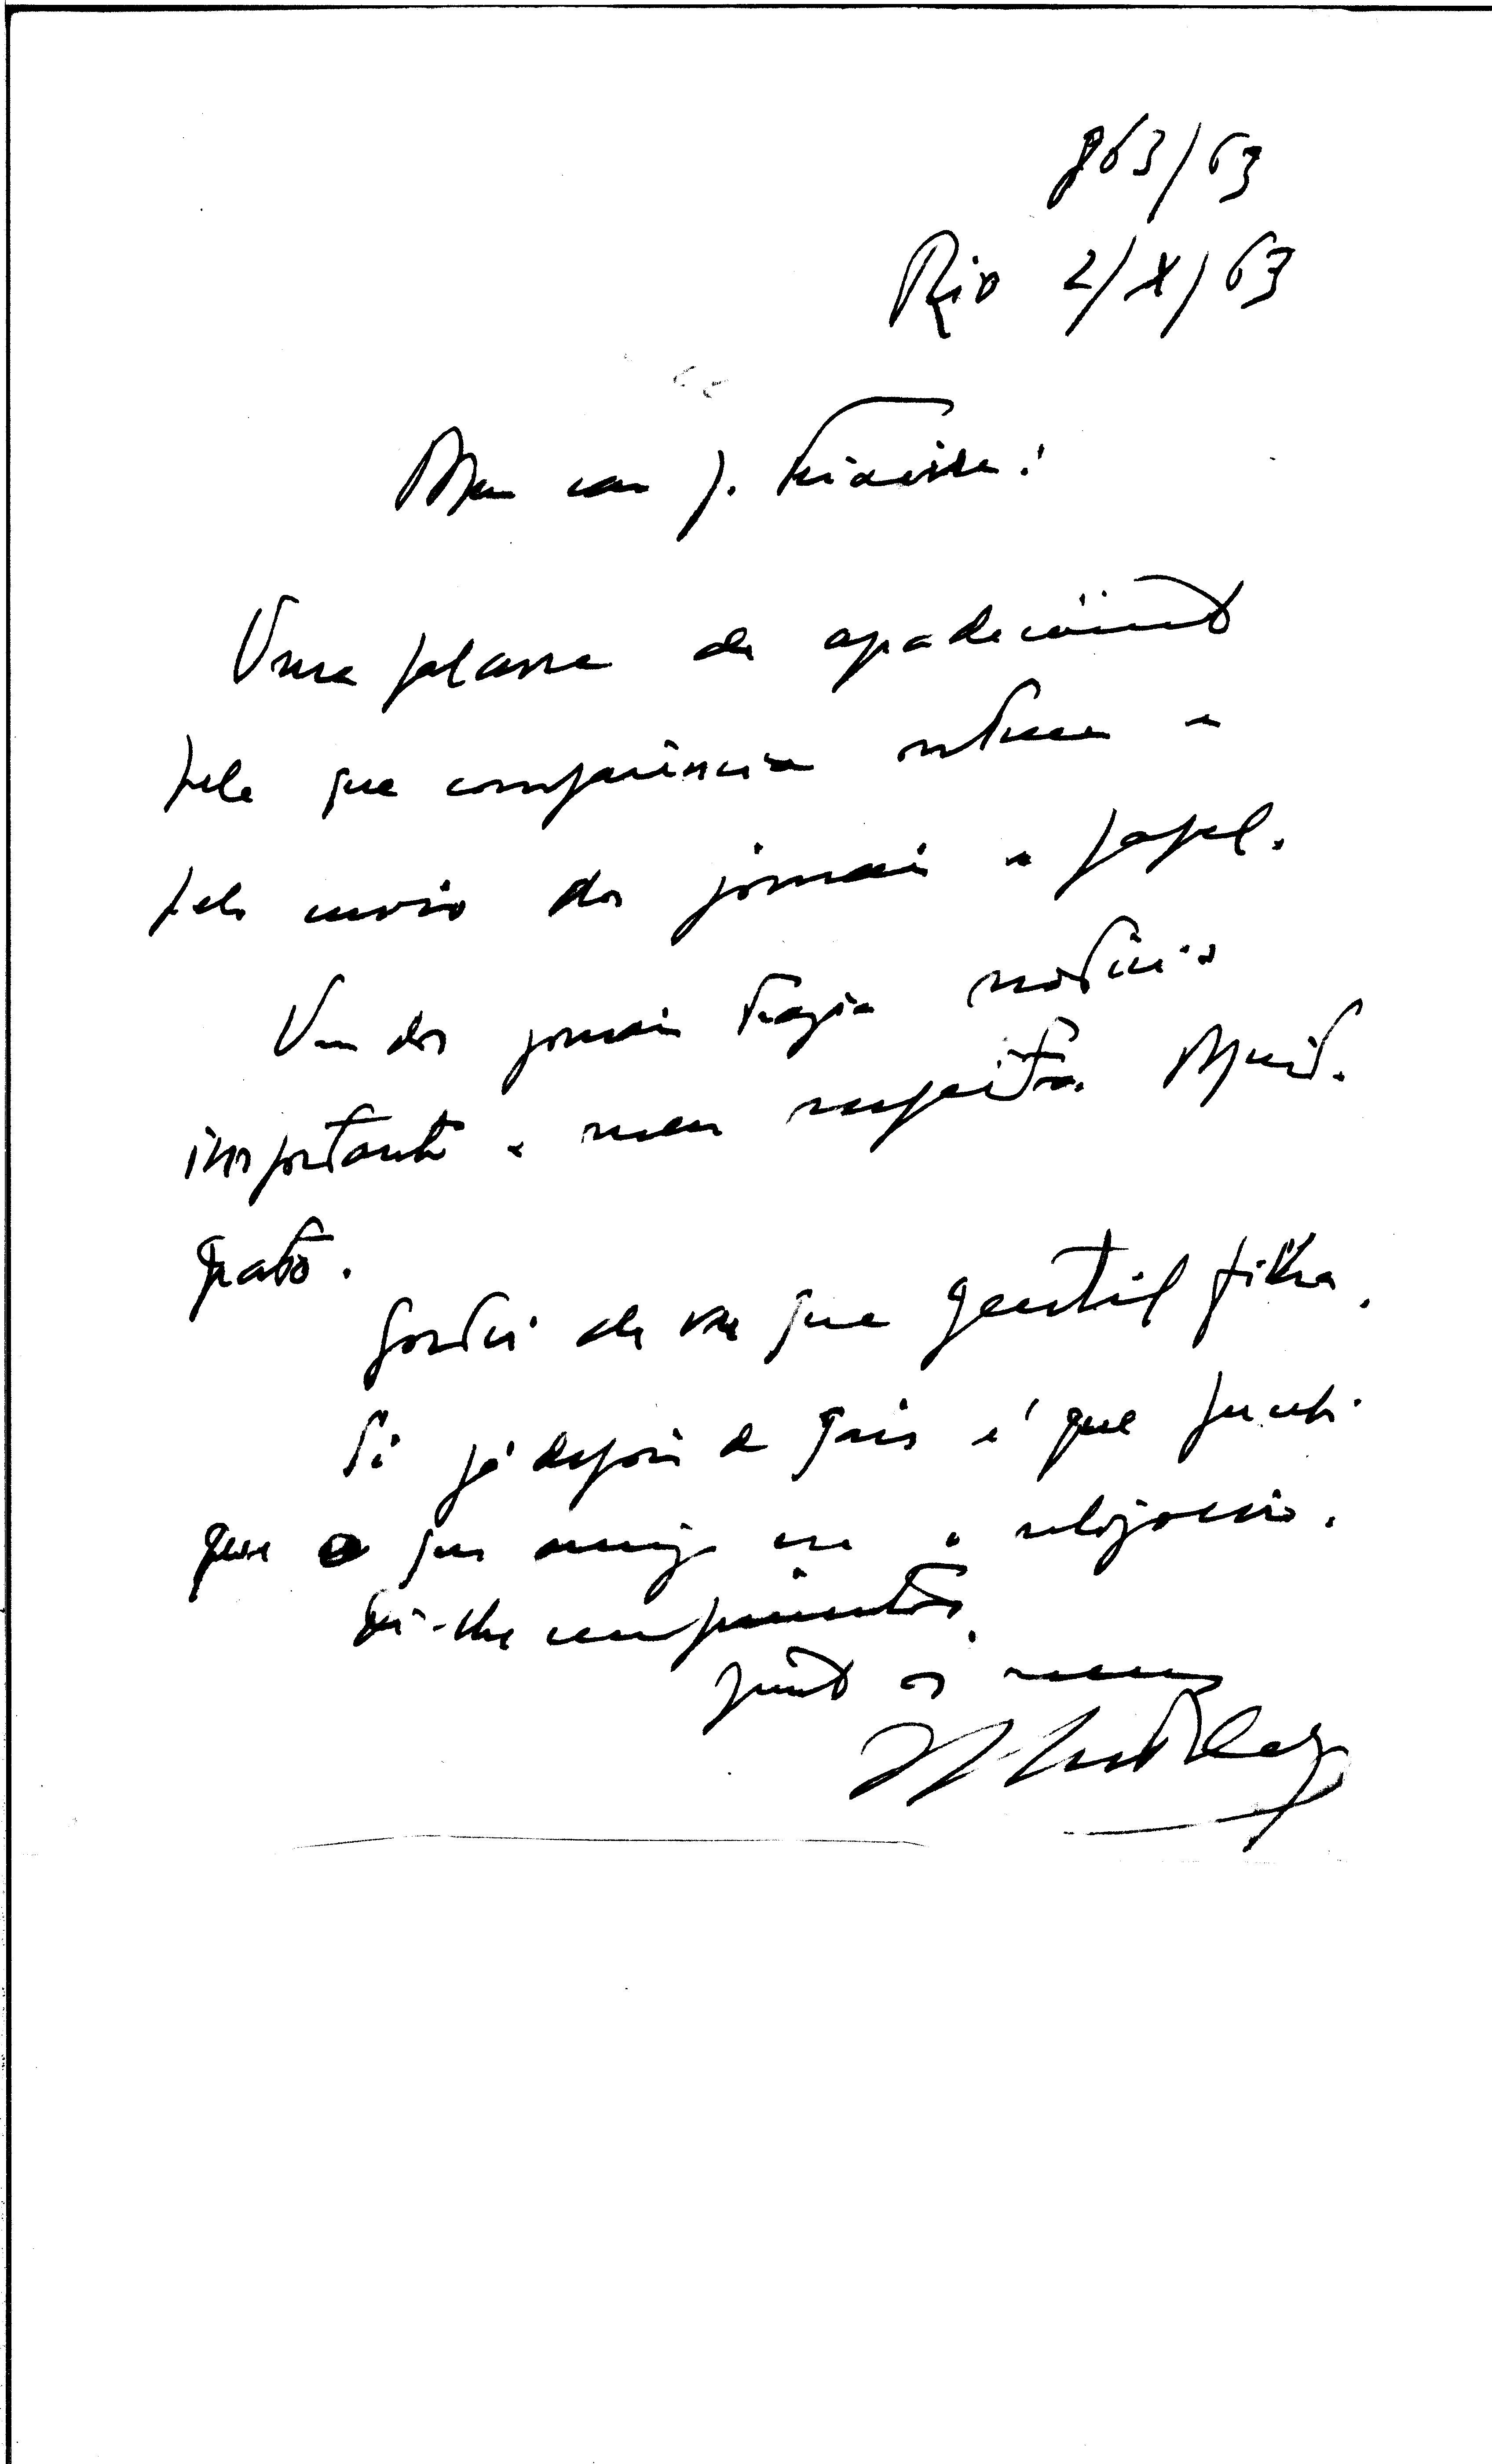 863/63
Rio 2/X/63
Meu caro J.
Uma palavra de agradecimento
pela sua comparência ontem e
pelo envio dos jornais e papel.
Um dos jornais trazia notícia
importante a meu respeito. Muito
grato.
Gostei de ver sua gentil filha.
Só já depois de sair é que
que o seu amigo era o relojoeiro.
cumprimentos
junto os meus